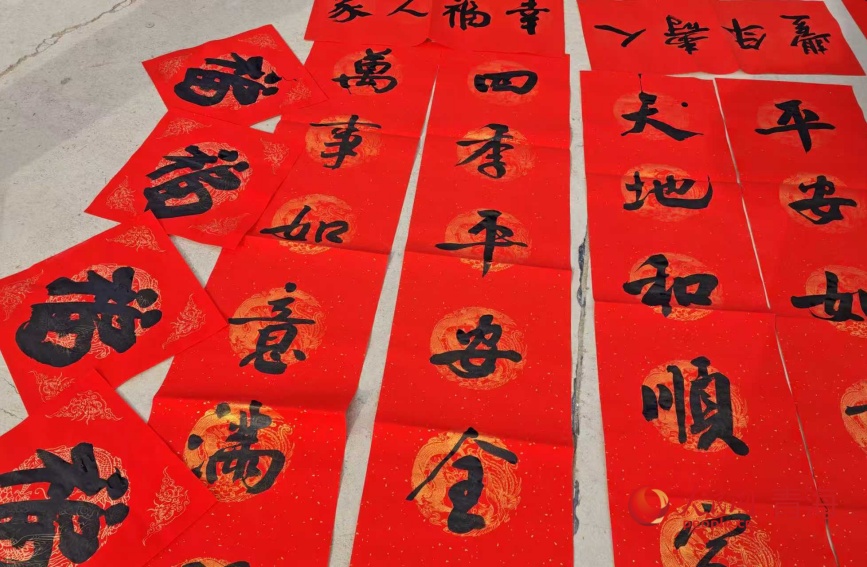 幸福人家
人壽年豐
平安如
天地和順
四季平安全
萬事如意滿
福
福
福
福